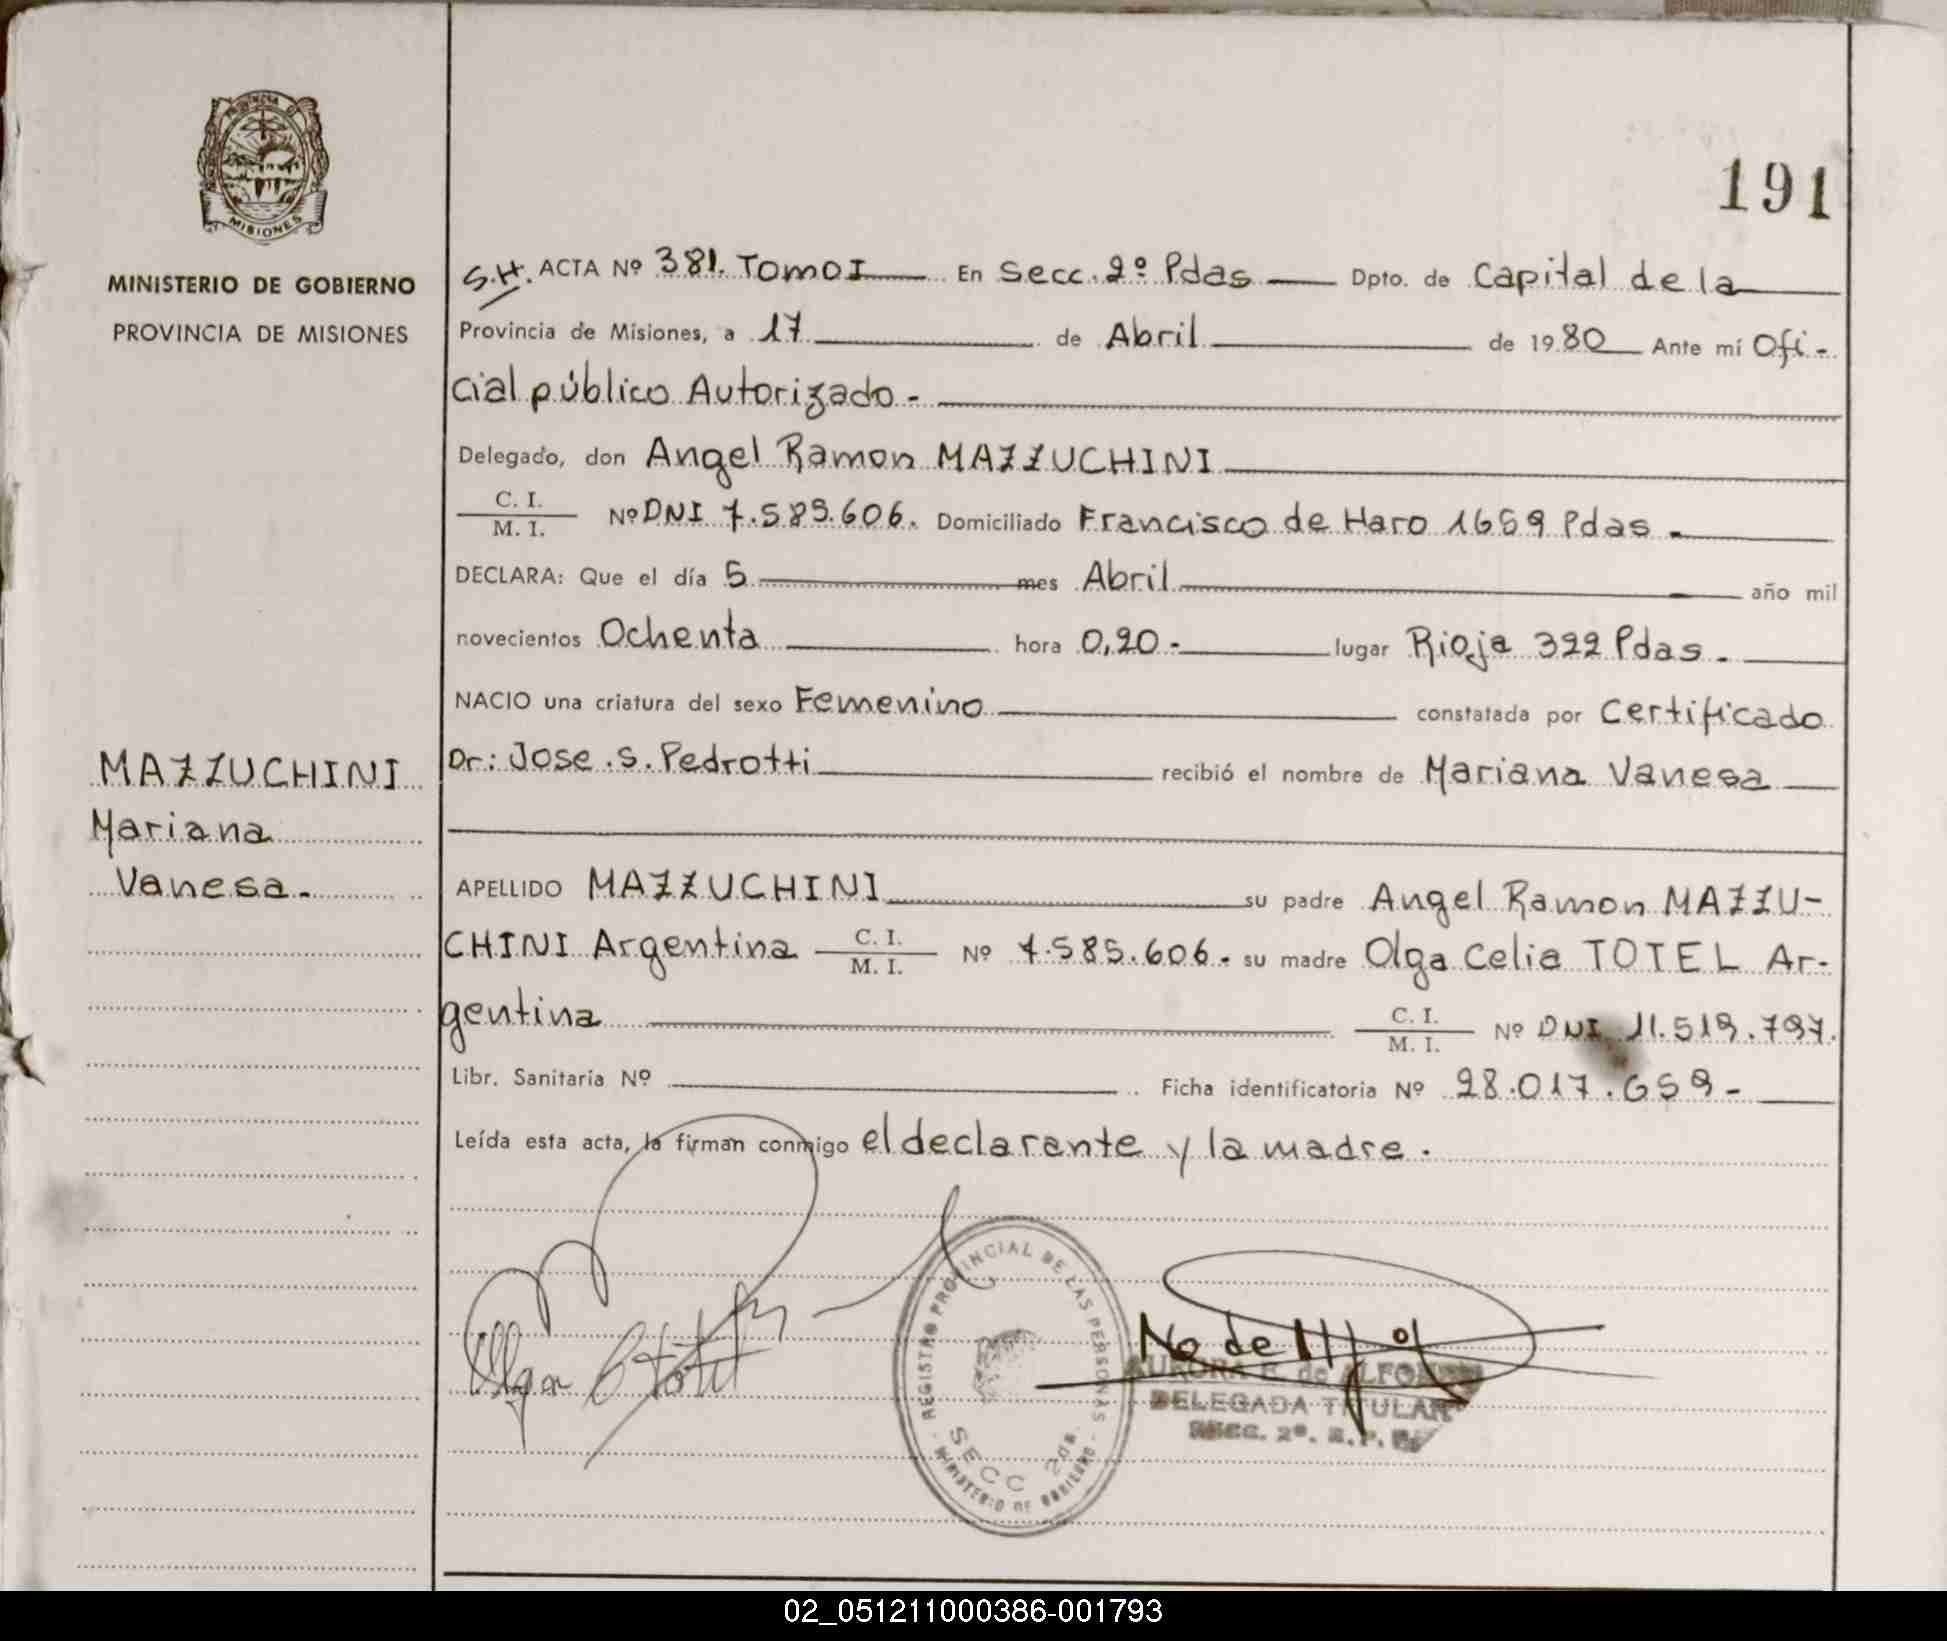 PROVINCIA DE
MISIONES
MINISTERIO DE GOBIERNO
PROVINCIA DE MISIONES
191
S.H. ACTA Nº 381. Tomo I En Secc. 2º Pdas Dpto. de Capital de la
Provincia de Misiones, a 17 de Abril de 1980 Ante mí Ofi-
cial público Autorizado -
Delegado, don Angel Ramon MAZZUCHINI
C. I.
M. I.
Nº DNI 7.585.606. Domiciliado Francisco de Haro 1659 Pdas -
DECLARA: Que el día 5 mes Abril año mil
novecientos Ochenta hora 0,20 - lugar Rioja 322 Pdas -
NACIO una criatura del sexo Femenino constatada por Certificado
Dr: Jose .S. Pedrotti recibió el nombre de Mariana Vanesa
MAZZUCHINI
Mariana
Vanesa -
APELLIDO MAZZUCHINI su padre Angel Ramon MAZZU-
CHINI Argentina C. I. M. I. Nº 7.585.606 - su madre Olga Celia TOTEL Ar-
gentina C. I. M. I. Nº DNI 11.519.797.
Libr. Sanitaria Nº Ficha identificatoria Nº 28.017.659 -
Leída esta acta, la firman conmigo el declarante y la madre .
REGISTRO PROVINCIAL DE LAS PERSONAS
SECC 2da.
- MINISTERIO DE GOBIERNO -
AURORA de
DELEGADA TITULAR
SECC. 2º. R. P.
02_051211000386-001793